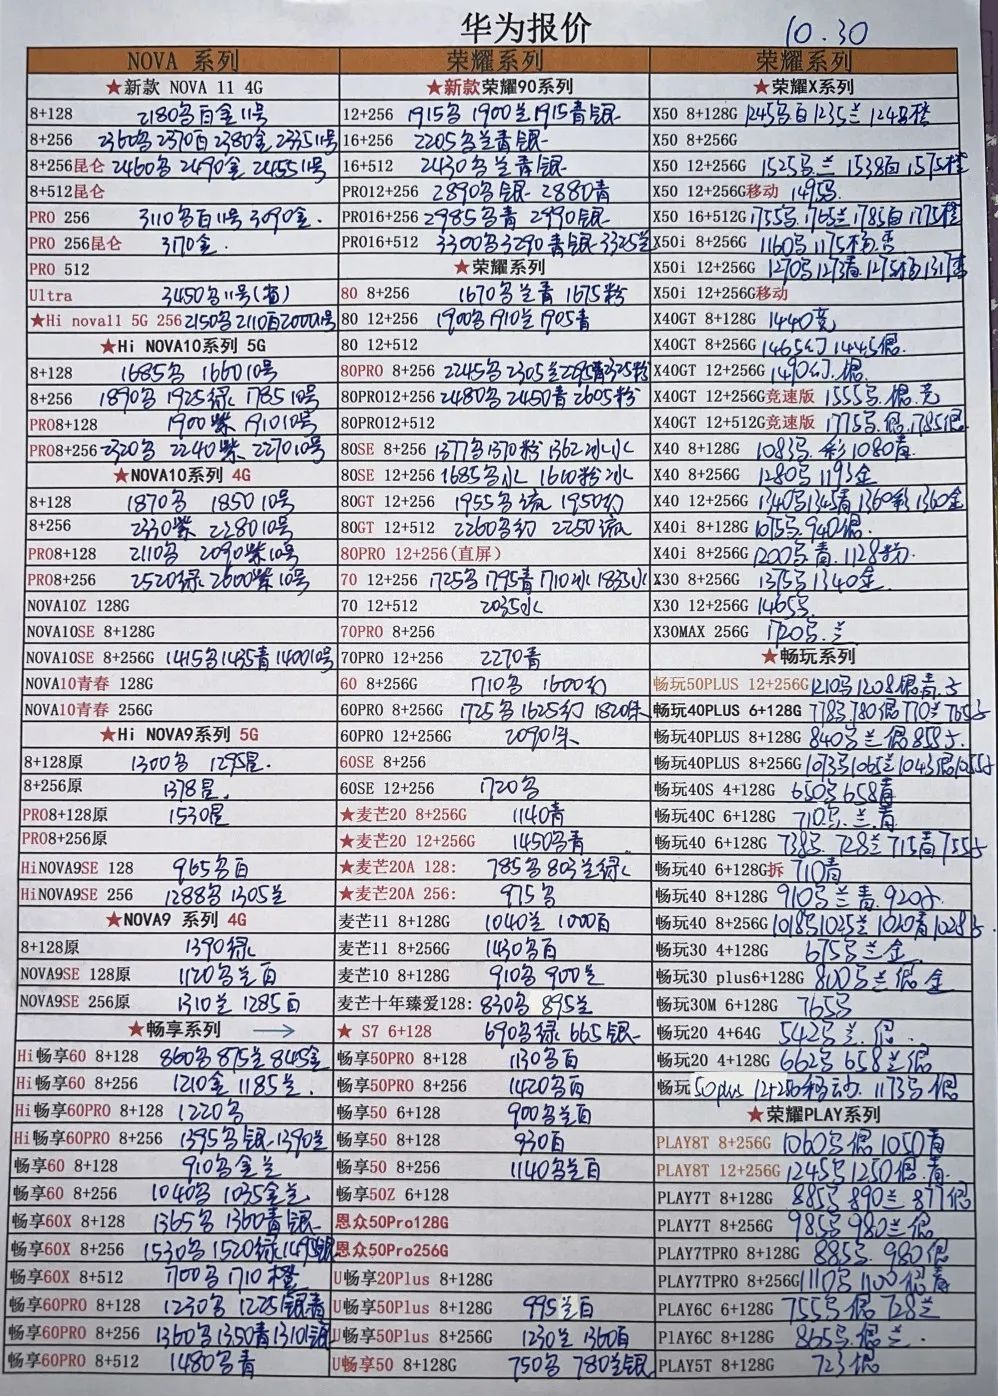 华为报价 10.30
NOVA 系列
★新款 NOVA 11 4G
8+128 2180名百金11号
8+256 2360名2370百2380金2335 11号
8+256昆仑 2460名2490金2455 11号
8+512昆仑
PRO 256 3110名百11号3090金.
PRO 256昆仑 3170金.
PRO 512
Ultra 3450名11号(省)
★Hi nova11 5G 256 2150名2110百2000 11号
★Hi NOVA10系列 5G
8+128 1685名 1660 10号
8+256 1890名 1925绿 1785 10号
PRO8+128 1900紫 1910 10号
PRO8+256 2320名 2240紫 2270 10号
★NOVA10系列 4G
8+128 1870名 1850 10号
8+256 2330紫 2280 10号
PRO8+128 2110名 2090紫10号
PRO8+256 2520绿 2600紫10号
NOVA10Z 128G
NOVA10SE 8+128G
NOVA10SE 8+256G 1415名1435青1400 10号
NOVA10青春 128G
NOVA10青春 256G
★Hi NOVA9系列 5G
8+128原 1300名 1295星.
8+256原 1378星.
PRO8+128原 1530星
PRO8+256原
HiNOVA9SE 128 965名百
HiNOVA9SE 256 1288名 1305兰
★NOVA9 系列 4G
8+128原 1390绿
NOVA9SE 128原 1120名兰百
NOVA9SE 256原 1310兰 1285百
★畅享系列 →
Hi畅享60 8+128 860名 875兰 845金
Hi畅享60 8+256 1210金 1185兰.
Hi畅享60PRO 8+128 1220名
Hi畅享60PRO 8+256 1395名银 1390兰
畅享60 8+128 910名金兰
畅享60 8+256 1040名 1035金兰
畅享60X 8+128 1365名 1360青银
畅享60X 8+256 1530名 1520绿 1495银
畅享60X 8+512 1700名 1710橙
畅享60PRO 8+128 1230名 1225银青
畅享60PRO 8+256 1360名1350青1310银
畅享60PRO 8+512 1480名青
荣耀系列
★新款荣耀90系列
12+256 1915名 1900兰1915青银
16+256 2205名兰青银
16+512 2430名兰青银
PRO12+256 2890名银 2880青
PRO16+256 2985名青 2990银
PRO16+512 3300名3290青银 3325兰
★荣耀系列
80 8+256 1670名兰青 1675粉
80 12+256 1900名1910兰1905青
80 12+512
80PRO 8+256 2245名 2305兰2295青2325粉
80PRO12+256 2480名 2450青 2605粉
80PRO12+512
80SE 8+256 1377名1370粉 1362冰水
80SE 12+256 1685名水 1610粉冰
80GT 12+256 1955名流 1950幻
80GT 12+512 2260名幻 2250流
80PRO 12+256(直屏)
70 12+256 1725名 1795青1710冰 1835水
70 12+512 2035水
70PRO 8+256
70PRO 12+256 2270青
60 8+256G 1710名 1600幻
60PRO 8+256G 1725名 1625幻 1820朱
60PRO 12+256G 2090朱
60SE 8+256
60SE 12+256 1720名
★麦芒20 8+256G 1140青
★麦芒20 12+256G 1450名青
★麦芒20A 128: 785名 803兰绿
★麦芒20A 256: 975名
麦芒11 8+128G 1040兰 1000百
麦芒11 8+256G 1430名百
麦芒10 8+128G 910名 900兰
麦芒十年臻爱128: 830名 895兰
★ S7 6+128 690名绿 665银
畅享50PRO 8+128 1130名百
畅享50PRO 8+256 1420名百
畅享50 6+128 900名兰百
畅享50 8+128 930百
畅享50 8+256 1140名兰百
畅享50Z 6+128
恩众50Pro128G
恩众50Pro256G
U畅享20Plus 8+128G
U畅享50Plus 8+128G 995兰百
U畅享50Plus 8+256G 1230兰 1360百
U畅享50 8+128G 750名 780兰银
荣耀系列
★荣耀X系列
X50 8+128G 1245名百1235兰 1248橙
X50 8+256G
X50 12+256G 1525名兰 1538百 1575橙
X50 12+256G移动 1495名
X50 16+512G 1755名 1765兰1785百 1775橙
X50i 8+256G 1160名1175杨.杏
X50i 12+256G 1270名1273青 1275杨1317杏
X50i 12+256G移动
X40GT 8+128G 1440竞
X40GT 8+256G 1465幻 1445银.
X40GT 12+256G 1490幻.银
X40GT 12+256G竞速版 1555名.银.竞
X40GT 12+512G竞速版 1775名.银.1785银
X40 8+128G 1083名.彩 1080青
X40 8+256G 1280名 1193金
X40 12+256G 1340名1345青 1360彩 1360金
X40i 8+128G 1075名.940银.
X40i 8+256G 1200名青. 1128粉.
X30 8+256G 1375名1340金.
X30 12+256G 1465名.
X30MAX 256G 1720名.兰
★畅玩系列
畅玩50PLUS 12+256G 1210名 1208银青.子
畅玩40PLUS 6+128G 778名.780银 770兰765子
畅玩40PLUS 8+128G 840名兰银 855子.
畅玩40PLUS 8+256G 1073名1065兰1043银1055子
畅玩40S 4+128G 650名 658青
畅玩40C 6+128G 710名.兰.青
畅玩40 6+128G 738名. 728兰 715青 755子
畅玩40 6+128G拆 710青
畅玩40 8+128G 910名兰青.920子.
畅玩40 8+256G 1018名1025兰 1020青1028子.
畅玩30 4+128G 675名兰金.
畅玩30 plus6+128G 800名兰银金
畅玩30M 6+128G 765名
畅玩20 4+64G 542名兰.银.
畅玩20 4+128G 662名 658兰银
畅玩50plus 12+256移动. 1173名银
★荣耀PLAY系列
PLAY8T 8+256G 1060名银 1050青
PLAY8T 12+256G 1245名1250银.青.
PLAY7T 8+128G 885名 890兰 877银
PLAY7T 8+256G 985名 980兰银
PLAY7TPRO 8+128G 885名. 980银
PLAY7TPRO 8+256G 1110名 1100银青
PLAY6C 6+128G 755名银 728兰
PlAY6C 8+128G 865名.银兰.
PLAY5T 8+128G 723银